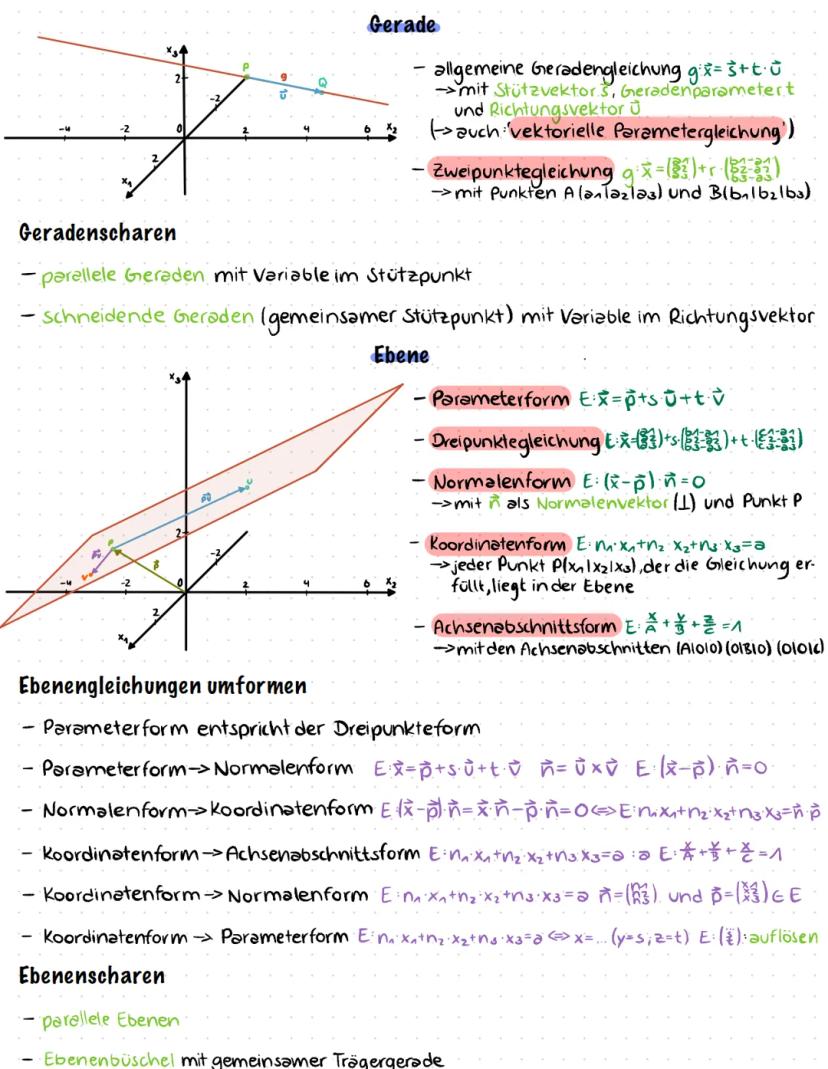 Gerade
x₃
P
g
Q
2
u⃗
-2
-4
-2
0
2
4
6
x₂
2
x₁
- allgemeine Geradengleichung g:x⃗=s⃗+t·u⃗
→mit Stützvektor s⃗, Geradenparameter t
und Richtungsvektor u⃗
(→ auch 'vektorielle Parametergleichung')
- Zweipunktegleichung g:x⃗=(a1 a2 a3)+r·(b1-a1 b2-a2 b3-a3)
→mit Punkten A(a1|a2|a3) und B(b1|b2|b3)
Geradenscharen
- parallele Geraden mit Variable im Stützpunkt
- schneidende Geraden (gemeinsamer Stützpunkt) mit Variable im Richtungsvektor
Ebene
x₃
U
2
P
-2
p⃗
V
-4
-2
0
2
4
6
x₂
2
x₁
- Parameterform E:x⃗=p⃗+s·u⃗+t·v⃗
- Dreipunktegleichung E:x⃗=(a1 a2 a3)+s·(b1-a1 b2-a2 b3-a3)+t·(c1-a1 c2-a2 c3-a3)
- Normalenform E:(x⃗-p⃗)·n⃗=0
→mit n⃗ als Normalenvektor (⊥) und Punkt P
- Koordinatenform E:n₁·x₁+n₂·x₂+n₃·x₃=a
→jeder Punkt P(x₁|x₂|x₃), der die Gleichung er-
füllt, liegt in der Ebene
- Achsenabschnittsform E:x/A+y/B+z/C=1
→mit den Achsenabschnitten (A|0|0)(0|B|0)(0|0|C)
Ebenengleichungen umformen
- Parameterform entspricht der Dreipunkteform
- Parameterform→Normalenform E:x⃗=p⃗+s·u⃗+t·v⃗ n⃗=u⃗×v⃗ E:(x⃗-p⃗)·n⃗=0
- Normalenform→Koordinatenform E:(x⃗-p⃗)·n⃗=x⃗·n⃗-p⃗·n⃗=0⇔E:n₁x₁+n₂·x₂+n₃x₃=n⃗·p⃗
- Koordinatenform→Achsenabschnittsform E:n₁·x₁+n₂·x₂+n₃x₃=a :a E:x/A+y/B+x/C=1
- Koordinatenform→Normalenform E:n₁·x₁+n₂·x₂+n₃·x₃=a n⃗=(n1 n2 n3) und p⃗=(x1 x2 x3)∈E
- Koordinatenform → Parameterform E:n₁·x₁+n₂·x₂+n₃·x₃=a ⇔ x=...(y=s;z=t) E:(x y z):auflösen
Ebenenscharen
- parallele Ebenen
- Ebenenbüschel mit gemeinsamer Trägergerade